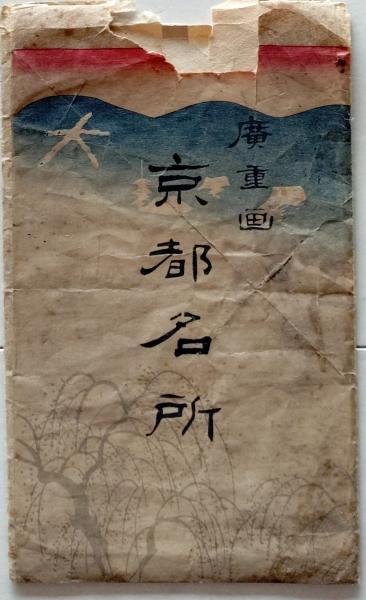 廣重画
京都名所
大